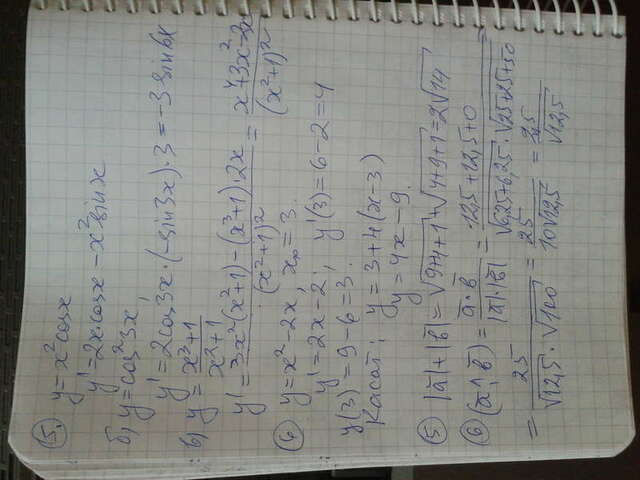 5. y = x² cosx
y' = 2x·cosx - x² sinx
б) y = cos² 3x,
y' = 2cos3x·(-sin3x)·3 = -3 sin6x
в) y = x³+1 / x²+1
y' = 3x²(x²+1) - (x³+1)·2x / (x²+1)² = x⁴+3x²-2x / (x²+1)²
4. y = x² - 2x, x₀ = 3.
y' = 2x - 2; y'(3) = 6 - 2 = 4
y(3) = 9 - 6 = 3.
Касат: y = 3 + 4(x - 3)
y = 4x - 9.
5 |a̅| + |b̅| = √9+4+1 + √4+9+1 = 2√14
6 (a̅ ^ b̅) = a̅·b̅ / |a̅|·|b̅| = 12,5+12,5+0 / √6,25+6,25 · √25+25+50 =
= 25 / √12,5 · √100 = 25 / 10√12,5 = 2,5 / √12,5